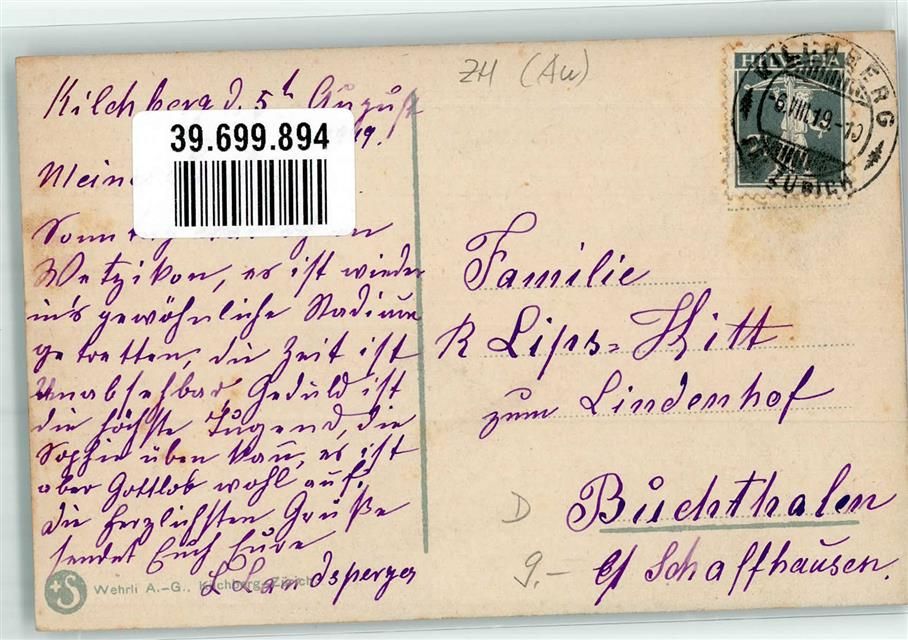 Kilchberg d. 5t August
19.
39.699.894
Meine
Sonntag
Wetzikon, es ist wieder
in's gewöhnliche Stadium
getretten, die Zeit ist
Unabsehbar Geduld ist
die höchste Tugend, die
Sophie üben kann, es ist
aber Gottlob wohl auf.
die herzlichsten Grüße
sendet Euch Eure
L Landsperger
Wehrli A.-G., Kilchberg-Zürich
ZH (Au)
HELVETIA
KILCHBERG
-6.VIII.19.-10
ZÜRICH
Familie
R Lips-Hitt
zum Lindenhof
D Buchthalen
9.- b/ Schaffhausen.